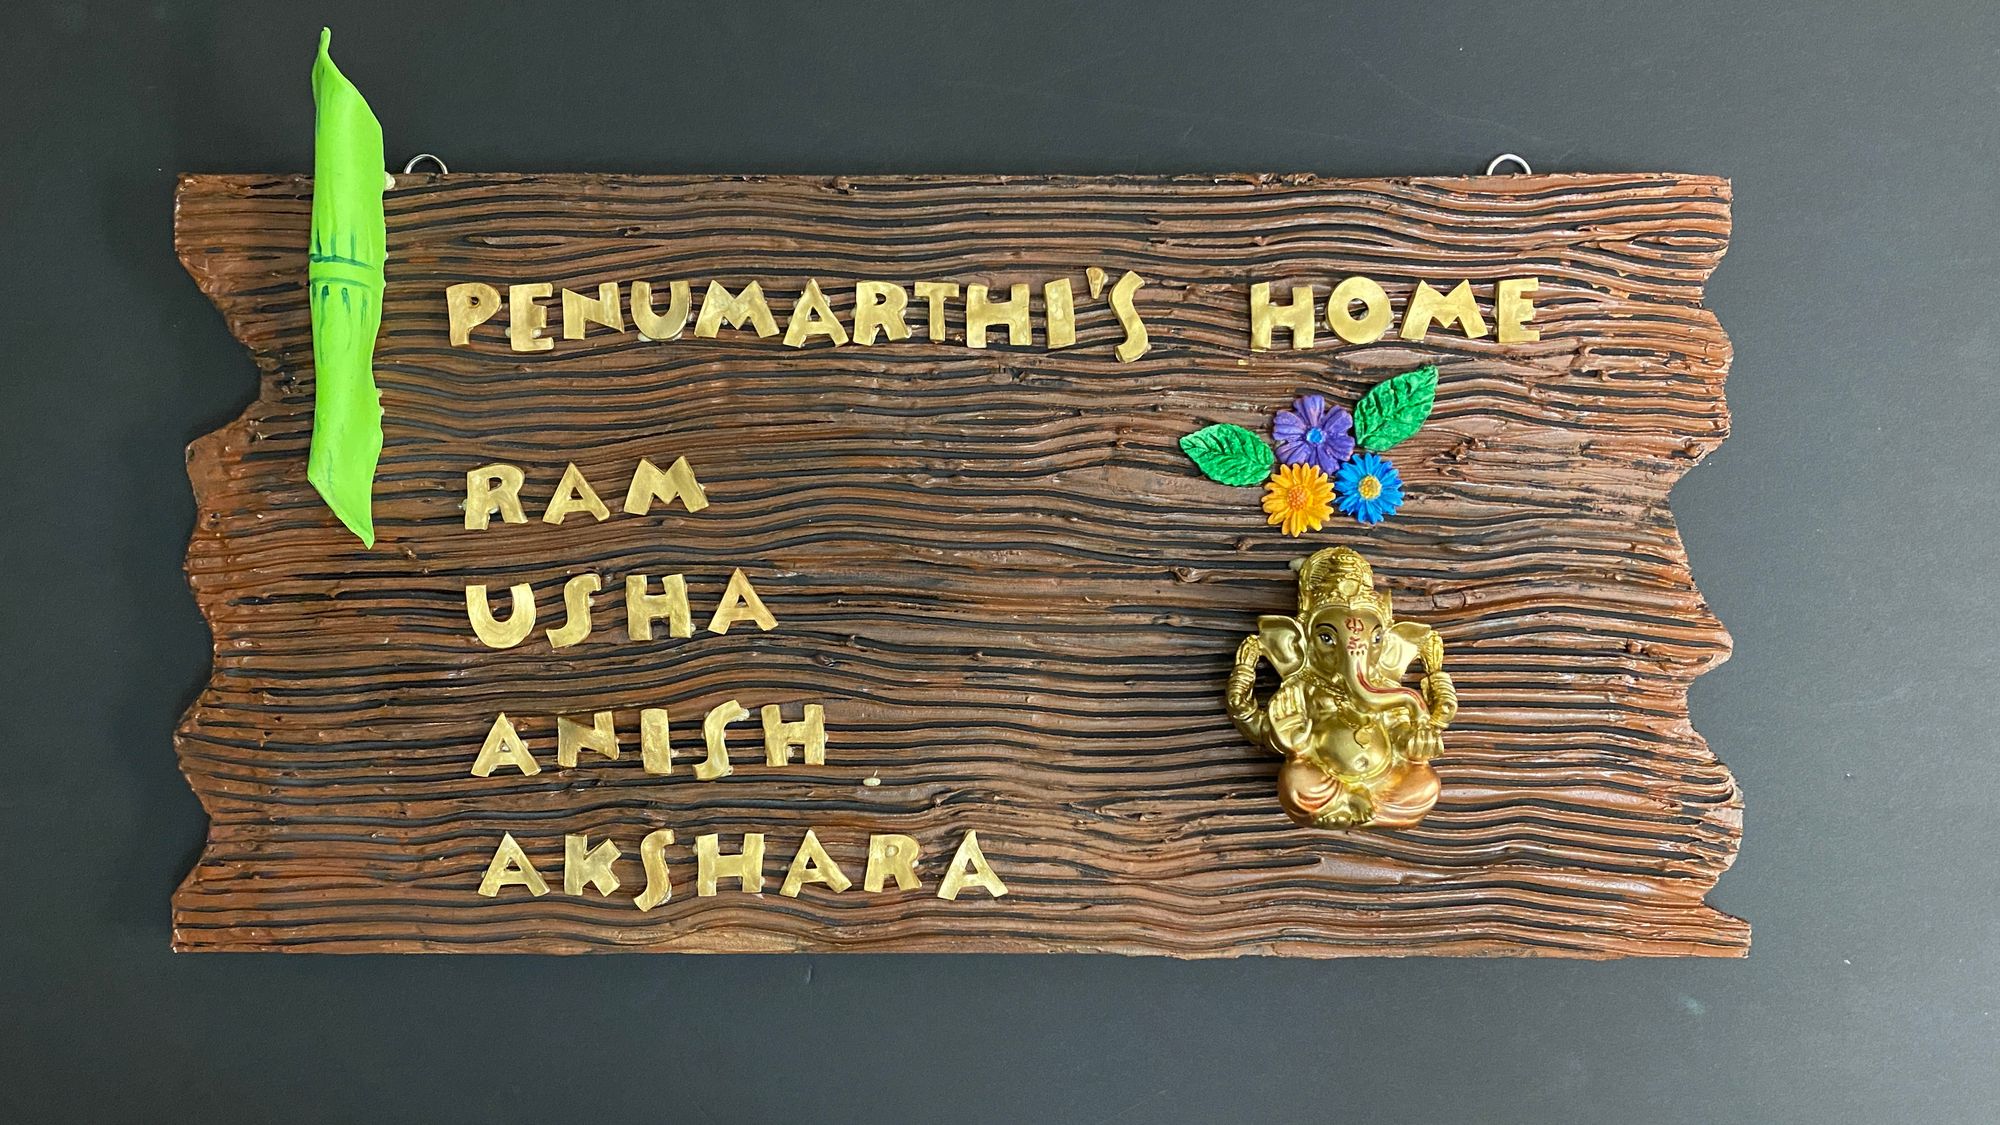 PENUMARTHI'S HOME
RAM
USHA
ANISH
AKSHARA